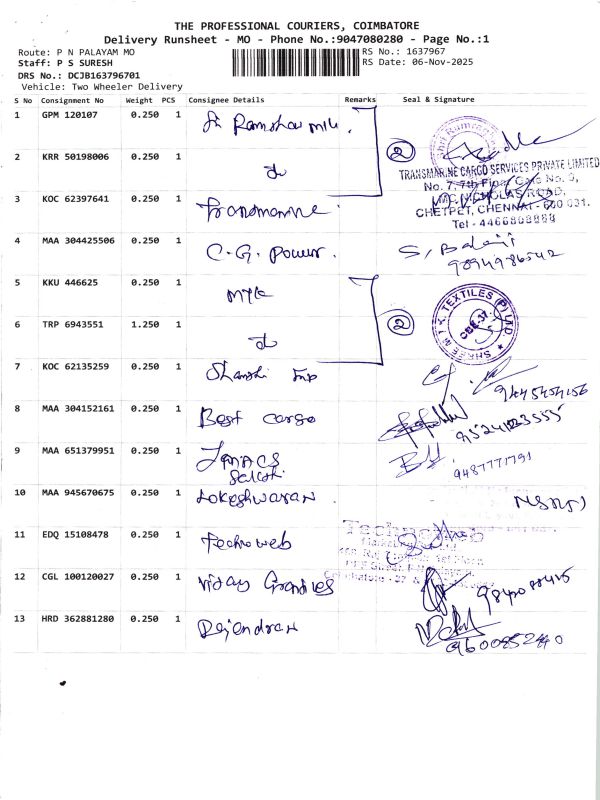 THE PROFESSIONAL COURIERS, COIMBATORE
Delivery Runsheet - MO - Phone No.:9047080280 - Page No.:1
Route: P N PALAYAM MO
RS No.: 1637967
Staff: P S SURESH
RS Date: 06-Nov-2025
DRS No.: DCJB163796701
Vehicle: Two Wheeler Delivery
S No Consignment No Weight PCS Consignee Details Remarks Seal & Signature
1 GPM 120107 0.250 1
2 KRR 50198006 0.250 1 do 2
TRANSMARINE CARGO SERVICES PRIVATE LIMITED
No. 7, 7th Floor,
NICHOLAS ROAD,
CHETPET, CHENNAI - 600 031.
Tel - 4466808888
3 KOC 62397641 0.250 1 Transmarine
4 MAA 304425506 0.250 1 C.G. Power. S. Balaji
9894986542
5 KKU 446625 0.250 1 MTK
6 TRP 6943551 1.250 1 do 2
SHREE M.T.K. TEXTILES (P) LTD
CBE-37
7 KOC 62135259 0.250 1 Shanthi
9445454156
8 MAA 304152161 0.250 1 Best cargo
9 MAA 651379951 0.250 1
Sakthi
9487771791
10 MAA 945670675 0.250 1 Lokeshwaran
11 EDQ 15108478 0.250 1 Techno web
Technoweb
12 CGL 100120027 0.250 1 Vijay Granites
13 HRD 362881280 0.250 1 Rajendran